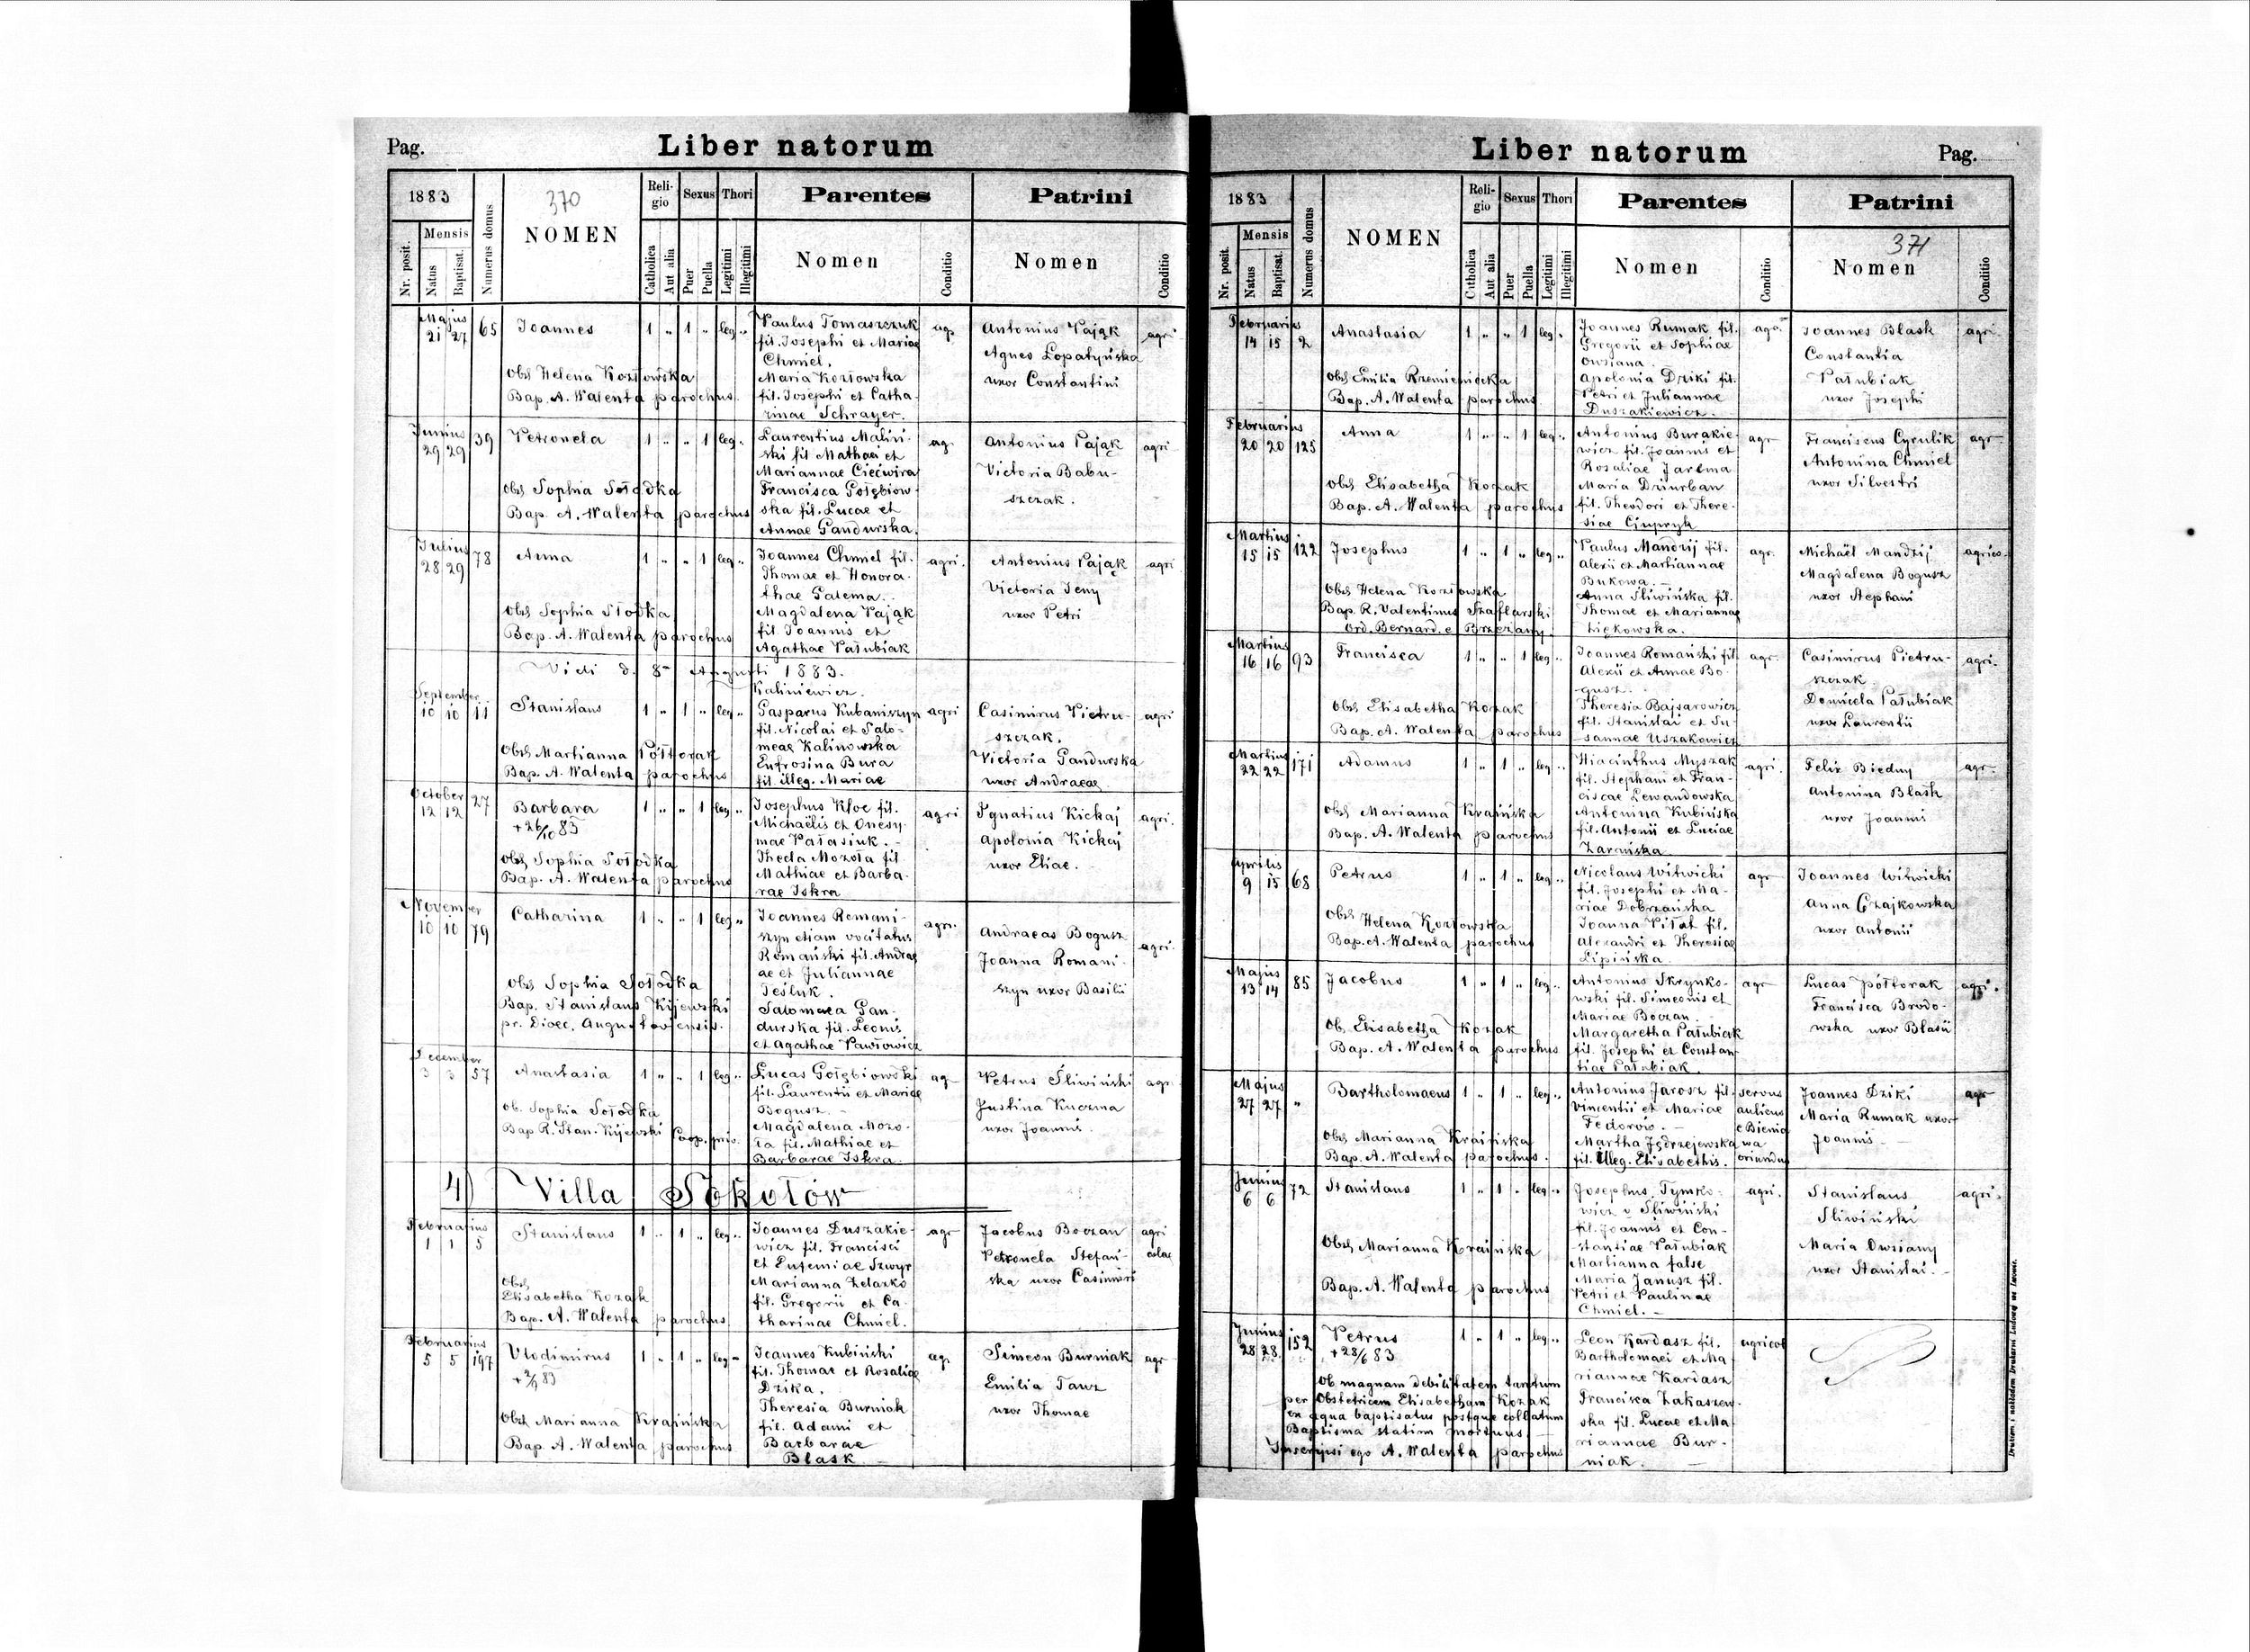 Pag.
Liber natorum
1883
370
Mensis
Nr. posit.
Natus
Baptisat.
Numerus domus
NOMEN
Religio
Catholica
Aut alia
Sexus
Puer
Puella
Thori
Legitimi
Illegitimi
Parentes
Nomen
Conditio
Patrini
Nomen
Conditio
Majus
21 27 65 Joannes 1 " 1 " leg "
Obs. Helena Kozłowska
Bap. A. Walenta parochus
Paulus Tomaszczuk
fil. Josephi et Mariae
Chmiel,
Maria Kozłowska
fil. Josephi et Catha-
rinae Schrayer.
agr
Antonius Pająk
Agnes Łopatyńska
uxor Constantini
agri
Junius
29 29 39 Petronela 1 " " 1 leg "
Obs. Sophia Sołodka
Bap. A. Walenta parochus
Laurentius Malin-
ski fil Mathaei et
Mariannae Ciećwira
Francisca Gołębiow-
ska fil. Lucae et
Annae Gandurska.
ag.
Antonius Pająk
Victoria Babu-
szczak.
agri
Julius
28 29 78 Anna 1 " " 1 leg "
Obs Sophia Słodka
Bap. A. Walenta parochus
Joannes Chmiel fil.
Thomae et Honora-
thae Galema.
Magdalena Pająk
fil. Joannis et
Agathae Pałubiak
agri.
Antonius Pająk
Victoria Jeny
uxor Petri
agri
Vidi d. 8 Augusti 1883.
Kaliniewicz.
September
10 10 11 Stanislaus 1 " 1 " leg "
Obs. Martianna Półtorak
Bap. A. Walenta parochus
Gasparus Kubaniszyn
fil. Nicolai et Salo-
meae Kalinowska
Eufrosina Bura
fil illeg. Mariae
agri
Casimirus Pietru-
szczak.
Victoria Gandurska
uxor Andraeae
agri
October
12 12 27 Barbara 1 " " 1 leg "
+ 26/10 83
Obs Sophia Sołodka
Bap. A. Walenta parochus
Josephus Kloc fil.
Michaëlis et Onesy-
mae Pałasiuk.
Thecla Mozoła fil
Mathiae et Barba-
rae Iskra
agri
Ignatius Kickaj
Apolonia Kickaj
uxor Eliae.
agri.
November
10 10 79 Catharina 1 " " 1 leg "
Obs Sophia Sołodka
Bap. Stanislaus Kijewski
pr. Dioec. Augustoviensis.
Joannes Romani-
szyn etiam vocitatus
Romański fil. Andrae
ae et Juliannae
Teśluk.
Salomaea Gan-
durska fil. Leonis
et Agathae Pawłowicz
agri.
Andraeas Bogusz
Joanna Romani-
szyn uxor Basilii
agri.
December
3 3 57 Anastasia 1 " " 1 leg "
Ob. Sophia Sołodka
Bap R. Stan. Kijewski Coop. priv.
Lucas Gołębiowski
fil. Laurentii et Mariae
Bogusz.
Magdalena Mozo-
ła fil. Mathiae et
Barbarae Iskra.
ag
Petrus Śliwiński
Justina Kuczma
uxor Joannis.
agr
4) Villa Sokołów
Februarius
1 1 5 Stanislaus 1 " 1 " leg "
Obs
Elisabetha Kozak
Bap. A. Walenta parochus
Joannes Duszakie-
wicz fil. Francisci
et Eufemiae Szwyr
Marianna Żelazko
fil. Gregorii et Ca-
tharinae Chmiel.
agr
Jacobus Boczan
Petronela Stefań-
ska uxor Casimiri
agri
colae
Februarius
5 5 197 Vlodimirus 1 " 1 " leg "
Obs Marianna Kraińska
Bap. A. Walenta parochus
Joannes Kubiński
fil. Thomae et Rosaliae
Dzika.
Theresia Burniak
fil. Adami et
Barbarae
Blask
agr
Simeon Burniak
Emilia Tanz
uxor Thomae
agr
Liber natorum
Pag.
1883
371
Mensis
Nr. posit.
Natus
Baptisat.
Numerus domus
NOMEN
Religio
Catholica
Aut alia
Sexus
Puer
Puella
Thori
Legitimi
Illegitimi
Parentes
Nomen
Conditio
Patrini
Nomen
Conditio
Februarius
14 15 2 Anastasia 1 " " 1 leg "
Obs Emilia Rzemieniecka
Bap. A. Walenta parochus
Joannes Rumak fil.
Gregorii et Sophiae
Owsiana
Apolonia Dziki fil.
Petri et Juliannae
Duszakiewicz.
agr
Joannes Blask
Constantia
Pałubiak
uxor Josephi
agri
Februarius
20 20 125 Anna 1 " " 1 leg "
Obs Elisabetha Kozak
Bap. A. Walenta parochus
Antonius Burakie-
wicz fil. Joannis et
Rosaliae Jarema
Maria Dziurban
fil. Theodori et There-
siae Ciupryk
agr
Franciscus Cyrulik
Antonina Chmiel
uxor Silvestri
agr
Martius
15 15 122 Josephus 1 " 1 " leg "
Obs Helena Kozłowska
Bap. R. Valentinus Szaflarski
Ord. Bernard. e Brzezany
Paulus Mandzij fil.
Alexii et Martiannae
Bukowa.
Anna Śliwińska fil.
Thomae et Mariannae
Liękowska.
agr.
Michaël Mandzij
Magdalena Bogusz
uxor Stephani
agrico-
Martius
16 16 93 Francisca 1 " " 1 leg "
Obs Elisabetha Kozak
Bap. A. Walenta parochus
Joannes Romański fil
Alexii et Annae Bo-
gusz.
Theresia Bajsarowicz
fil. Stanislai et Su-
sannae Uszakowicz
agr.
Casimirus Pietru-
szczak
Domicela Pałubiak
uxor Laurentii
agri.
Martius
22 22 171 Adamus 1 " 1 " leg "
Obs Marianna Kraińska
Bap. A. Walenta parochus
Hiacinthus Myszak
fil. Stephani et Fran-
ciscae Lewandowska
Antonina Kubińska
fil. Antonii et Luciae
Żarańska
agri.
Felix Biedny
Antonina Blask
uxor Joannis
agr.
Aprilis
9 15 68 Petrus 1 " 1 " leg "
Obs Helena Kozłowska
Bap. A. Walenta parochus
Nicolaus Witwicki
fil. Josephi et Ma-
riae Dobrzańska
Joanna Piłat fil.
Alexandri et Theresiae
Lipińska.
agr
Joannes Witwicki
Anna Czajkowska
uxor Antonii
Majus
13 14 85 Jacobus 1 " 1 " leg "
Ob. Elisabetha Kozak
Bap. A. Walenta parochus
Antonius Skrynko-
wski fil. Simeonis et
Mariae Boczan.
Margaretha Pałubiak
fil. Josephi et Constan-
tiae Pałubiak
agr
Lucas Półtorak
Francisca Brodo-
wska uxor Blasii
agri.
Majus
27 27 " Bartholomaeus 1 " 1 " leg "
Obs Marianna Kraińska
Bap. A. Walenta parochus.
Antonius Jarosz fil.
Vincentii et Mariae
Fedorów.
Martha Jędrzejewska
fil. illeg. Elisabethis.
servus
aulicus
e Bienia
wa
oriundus
Joannes Dziki
Maria Rumak uxor
Joannis
agr
Junius
6 6 72 Stanislaus 1 " 1 " leg "
Obs Marianna Kraińska
Bap. A. Walenta parochus
Josephus Tymko-
wicz v Śliwiński
fil. Joannis et Con-
stantiae Pałubiak
Martianna false
Maria Janusz fil.
Petri et Paulinae
Chmiel.
agri.
Stanislaus
Śliwiński
Maria Owsiany
uxor Stanislai.
agri.
Junius
28 28 152 Petrus 1 " 1 " leg "
+ 28/6 83
Ob magnam debilitatem tantum
per Obstetricem Elisabetham Kozak
ex aqua baptisatus postque collatum
Baptisma statim mortuus.
Inscripsi ego A. Walenta parochus
Leon Kardasz fil.
Bartholomaei et Ma-
riannae Kardasz
Francisca Zakaszew-
ska fil. Lucae et Ma-
riannae Bur-
niak.
agricol
Drukiem i nakładem Drukarni Ludowej we Lwowie.